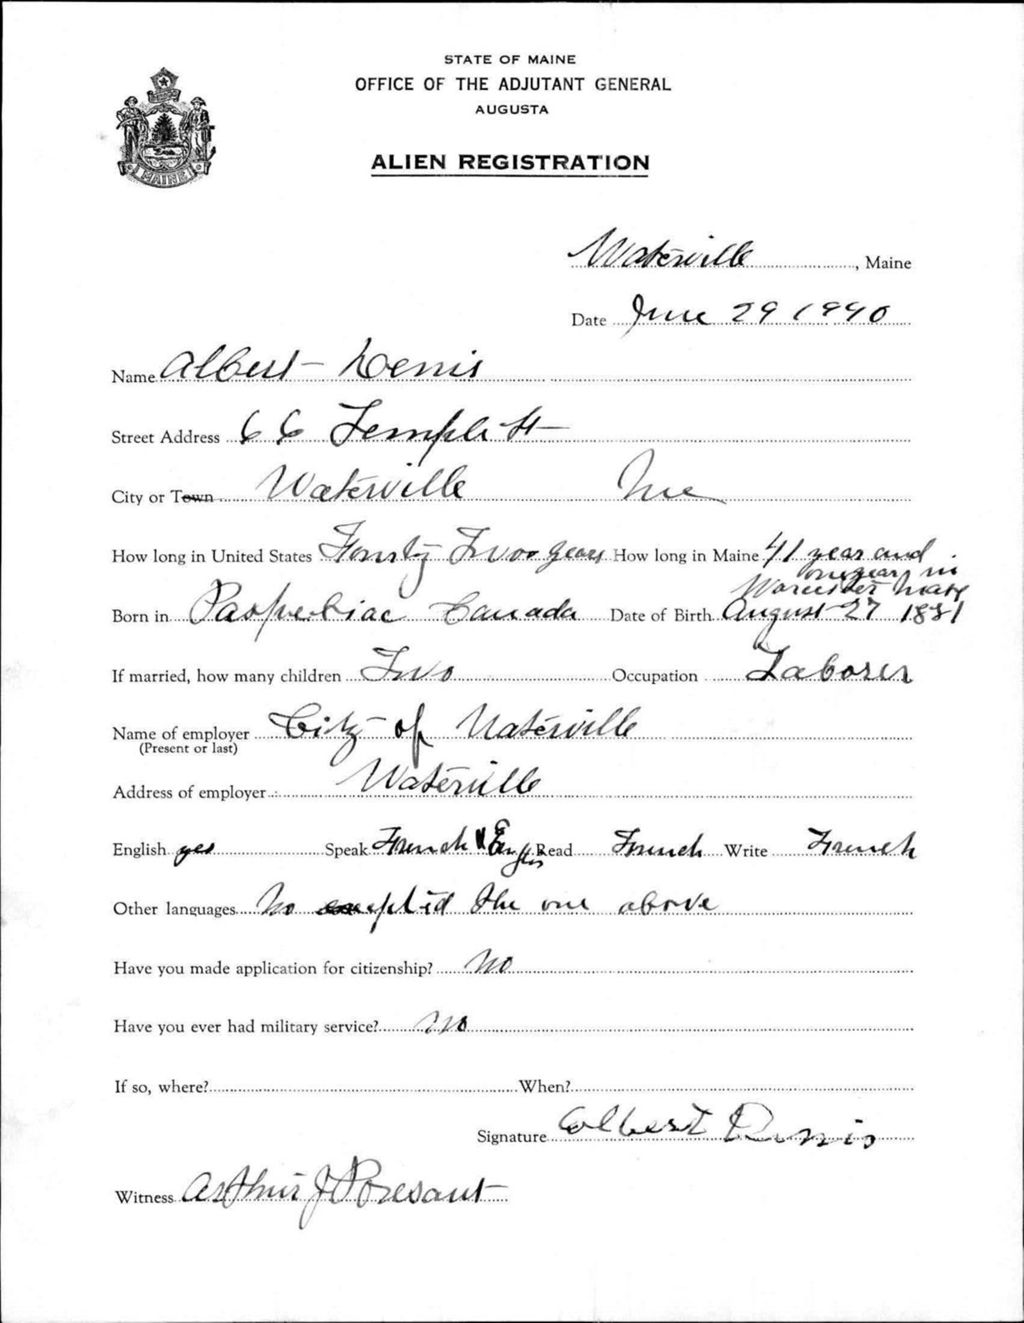 STATE OF MAINE
OFFICE OF THE ADJUTANT GENERAL
AUGUSTA
ALIEN REGISTRATION
MAINE
Waterville, Maine
Date June 29 1940
Name Albert Denis
Street Address 66 Temple St
City or Town Waterville Me
How long in United States Fourty Two years How long in Maine 41 year and
one year in
Worcester Mass
Born in Paspebiac Canada Date of Birth August 27 1881
If married, how many children Two Occupation Laborer
Name of employer City of Waterville
(Present or last)
Address of employer Waterville
English yes Speak French & English Read French Write French
Other languages No the one above
Have you made application for citizenship? No
Have you ever had military service? No
If so, where? When?
Signature Albert Denis
Witness Arthur J